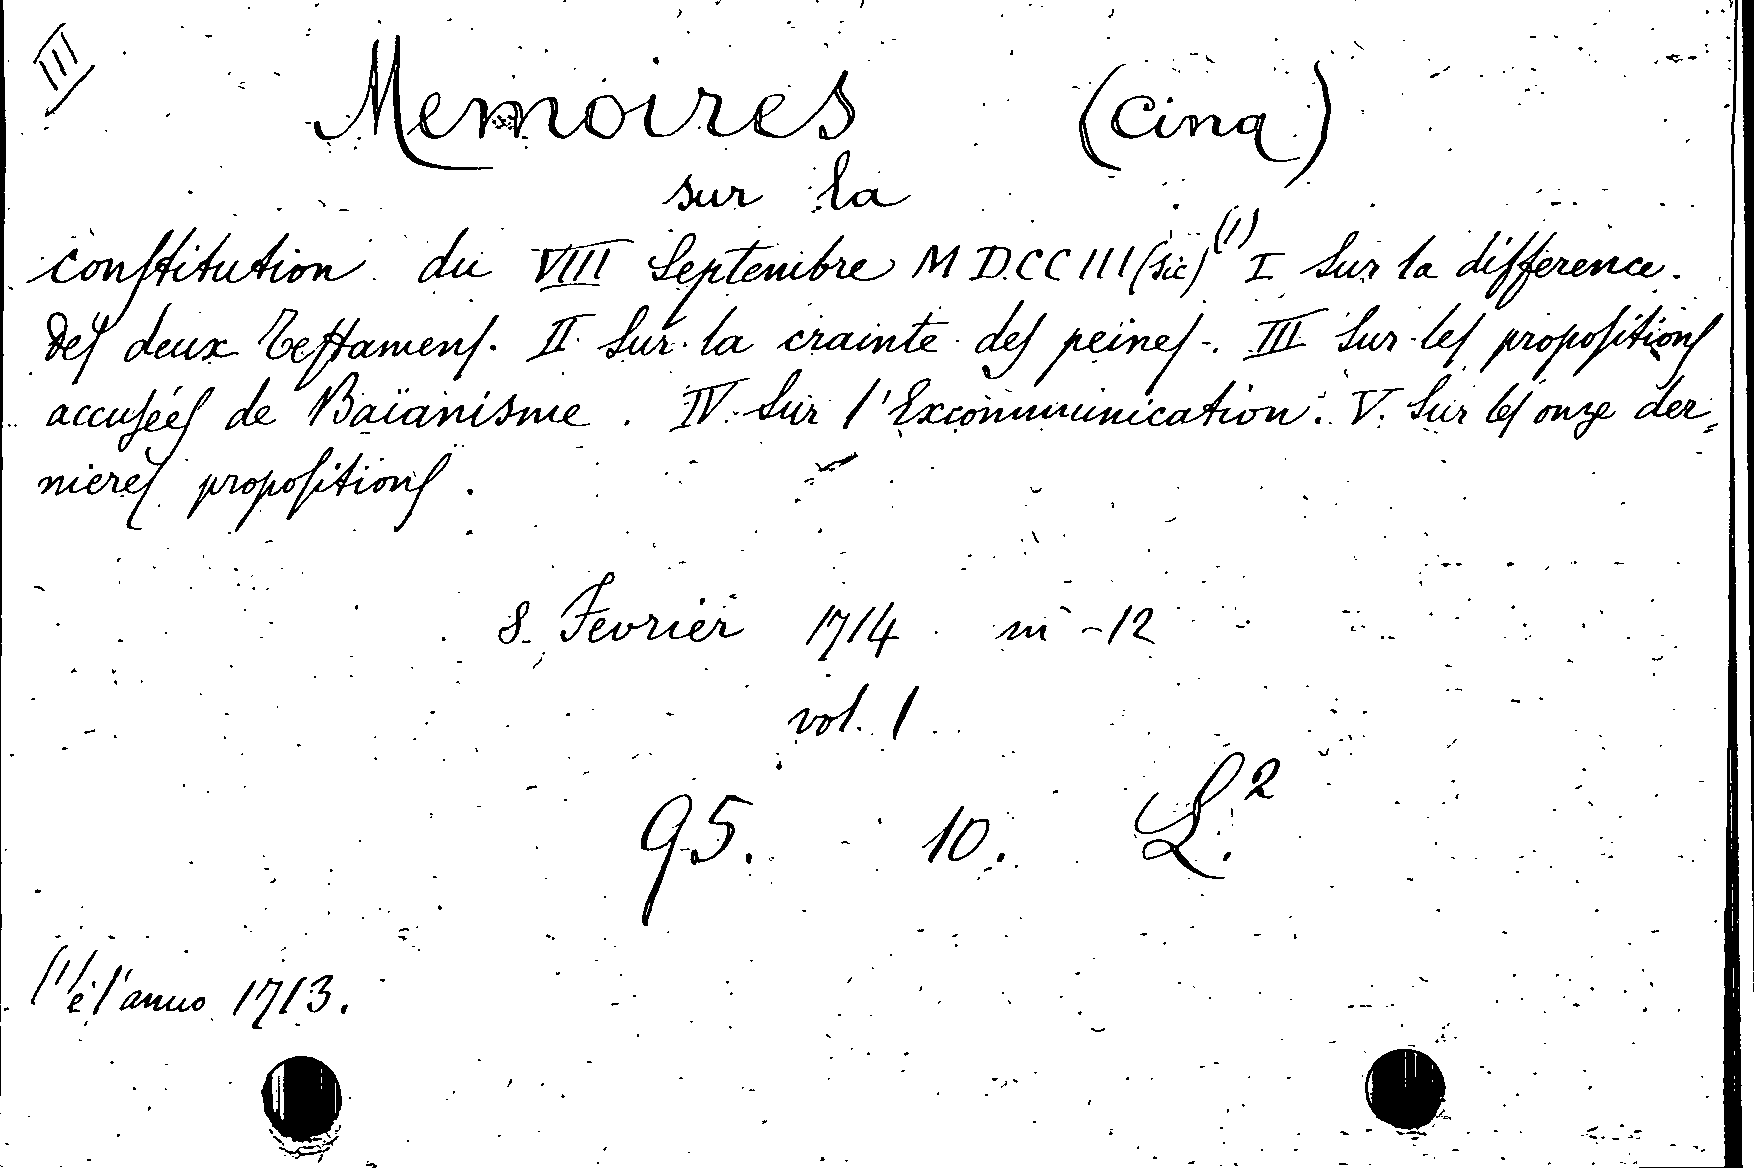 III
Memoires (Cinq)
sur la
Conſtitution du VIII Septembre MDCCIII (sic) (1) I Sur la difference
Deſ deux Teſtamenſ. II. Sur la crainte deſ peineſ. III Sur leſ propoſitionſ
accuſéeſ de Baïanisme. IV. Sur l'Excommunication. V. Sur leſ onze der=
niereſ propoſitionſ.
8. Fevrier 1714 in-12
vol. 1
95. 10. L.²
(1) è l'anno 1713.